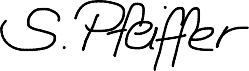 S. Pfeiffer